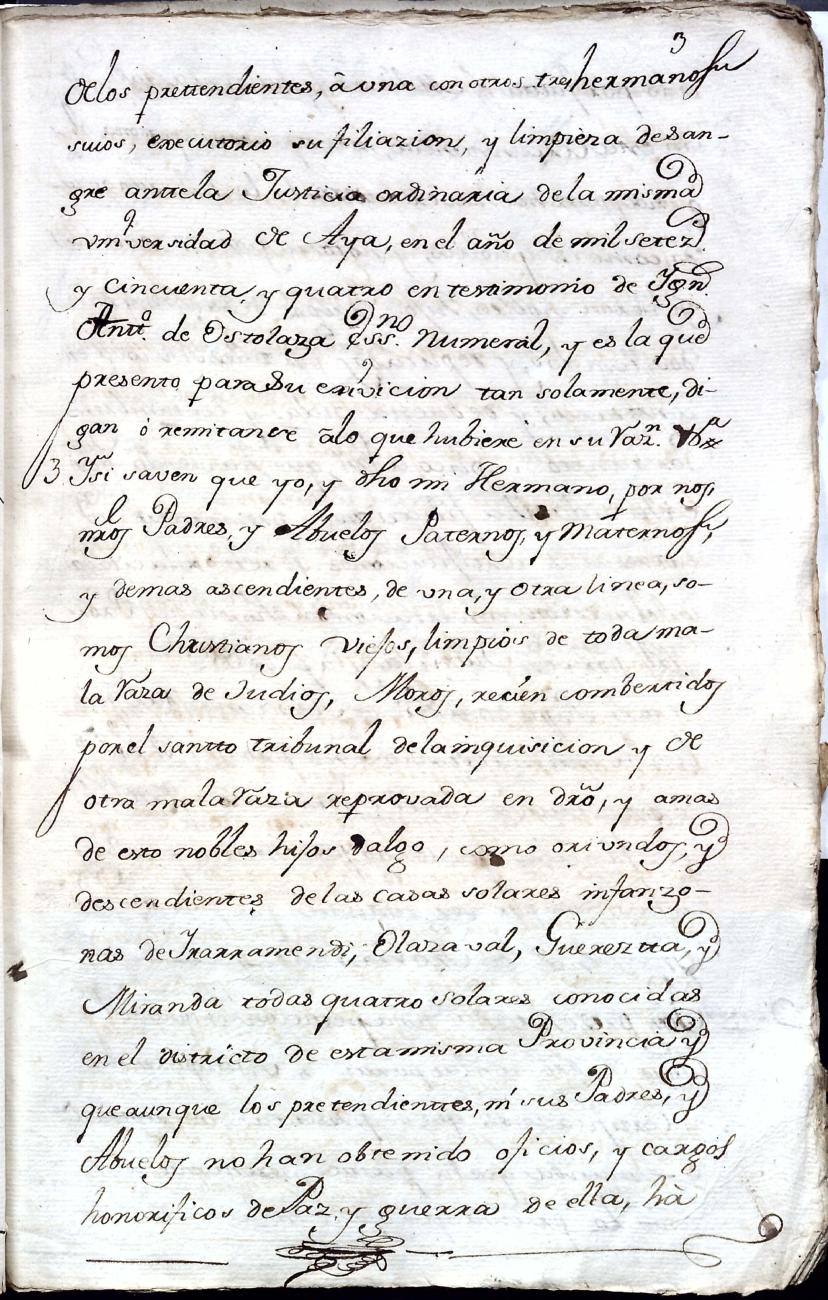 3
de los prettendientes, â una con otros tres hermanos
suios, executorio su filiazion, y limpieza de san-
gre antte la Justicia ordinaria de la misma
vniversidad de Aya, en el año de mil setez.s
y cincuenta, y quatro en testimonio de Ygn.o
Antt.o de Ostolaza Ess.no Numeral, y es la que
presento para su exivicion tan solamente, di-
gan ó remitanse âlo que hubiere en su Raz.n
3. Ytt. si saven que yo, y dho mi Hermano, por nos,
nrôs Padres, y Abuelos Paternos, y Maternos,
y demas ascendientes, de una, y otra linea, so-
mos Christianos Viejos, limpios de toda ma-
la Raza de Judios, Moros, recien combertidos
por el santto tribunal de la inquisicion y de
otra mala Raza reprovada en drô, y amas
de esto nobles hijos dalgo, como oriundos, y
descendientes de las casas solares infanzo-
nas de Irarramendi, Olazaval, Guereztta, y
Miranda todas quatro solares conocidas
en el districto de esta misma Provincia y
que aunque los pretendienttes, ni sus Padres, y
Abuelos no han obtenido oficios, y cargos
honorificos de Paz, y guerra de ella, hà